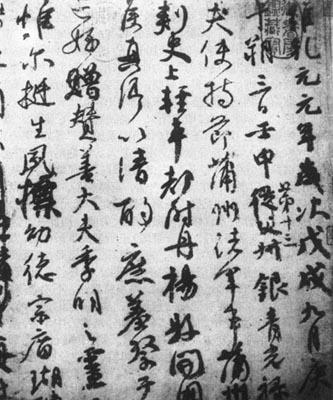 維乾元元年歲次戊戌九月庚
午朔三日壬申第十三叔銀青光祿
夫使持節蒲州諸軍事蒲州
刺史上輕車都尉丹楊縣開國
侯真卿以清酌庶羞祭于
亡姪贈贊善大夫季明之靈
惟爾挺生夙標幼德宗廟瑚